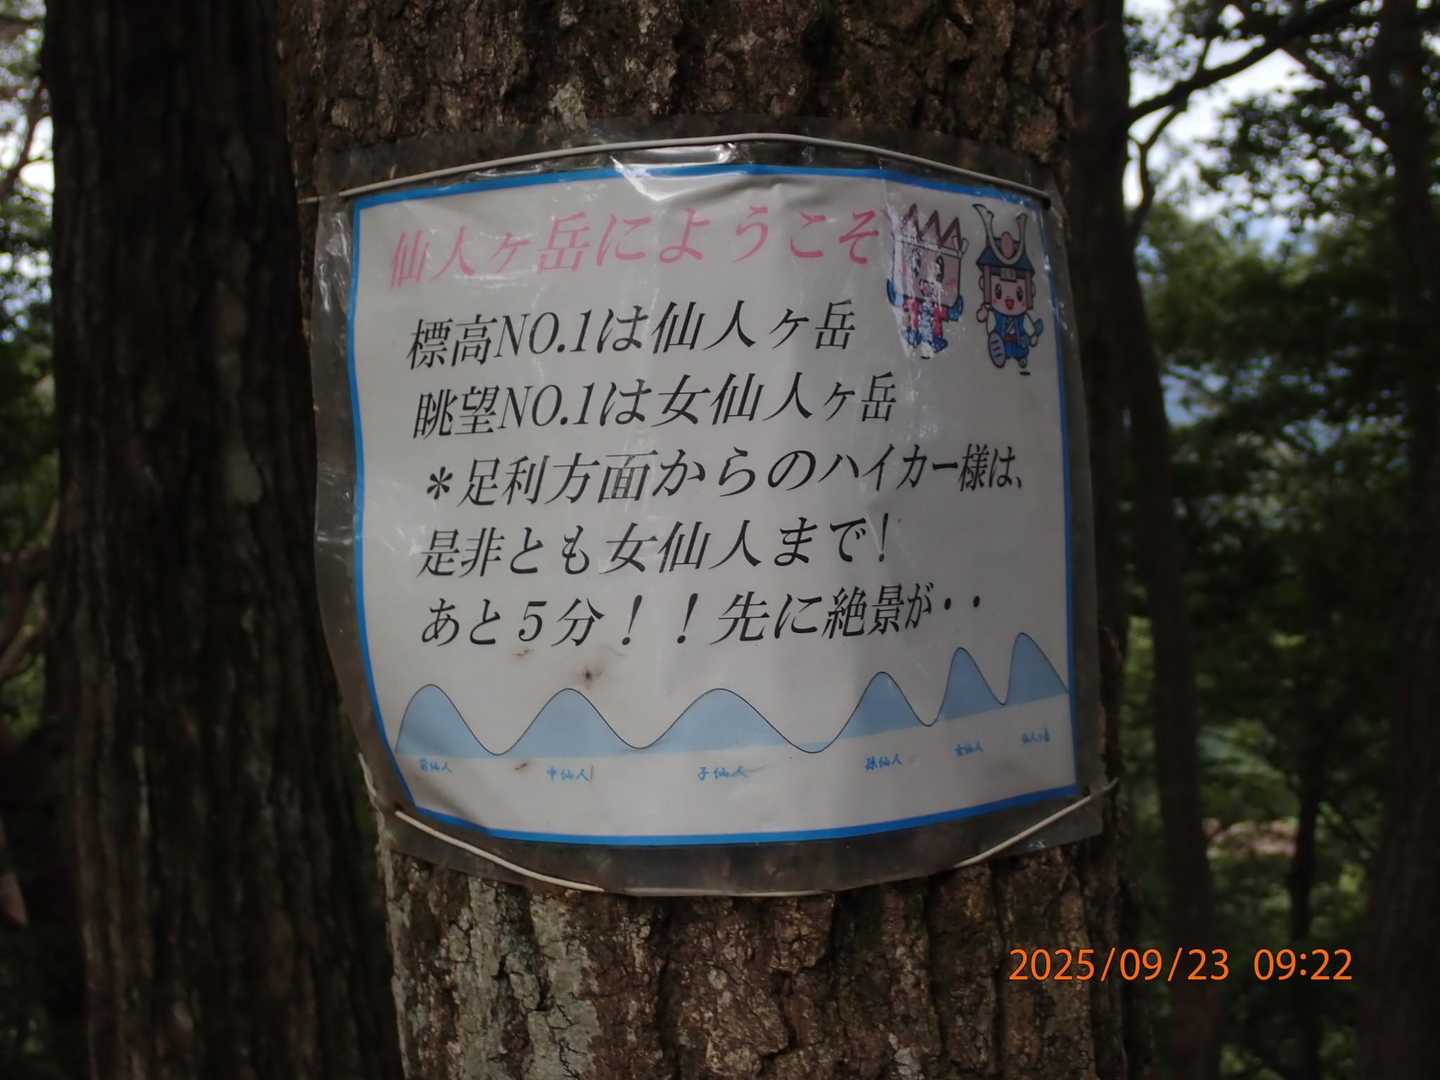 仙人ヶ岳にようこそ
標高NO.1は仙人ヶ岳
眺望NO.1は女仙人ヶ岳
＊足利方面からのハイカー様は、
是非とも女仙人まで！
あと５分！！先に絶景が・・
前仙人 中仙人 子仙人 孫仙人 女仙人 仙人ヶ岳
2025/09/23 09:22